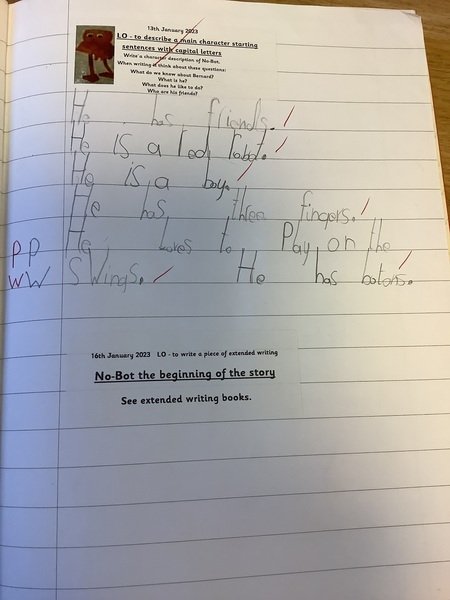 13th January 2023
LO - to describe a main character starting
sentences with capital letters
Write a character description of No-Bot.
When writing it think about these questions:
What do we know about Bernard?
What is he?
What does he like to do?
Who are his friends?
He has friends.
He is a red robot.
He is a boy.
He has three fingers.
pp He loves to Play on the
wW SWings. He has botons.
16th January 2023 LO - to write a piece of extended writing
No-Bot the beginning of the story
See extended writing books.